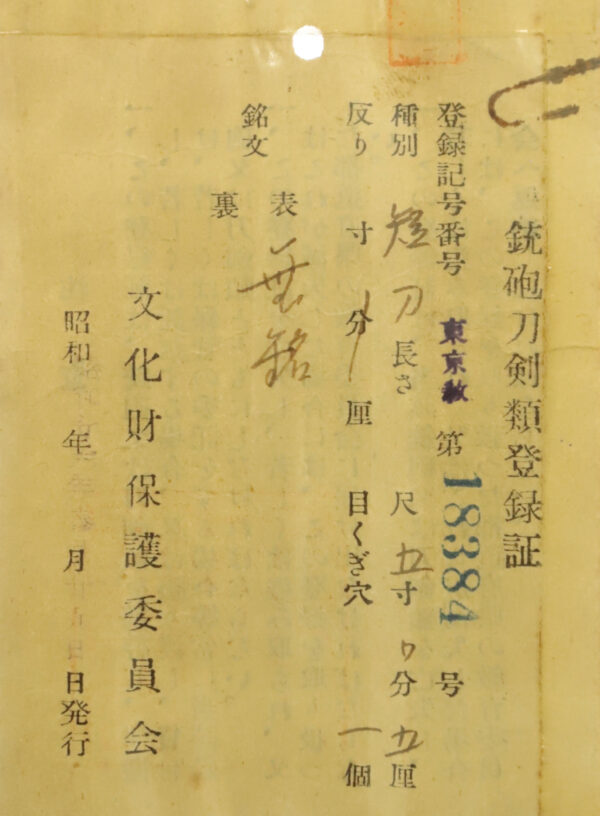 銃砲刀剣類登録証
登録記号番号 東京教 第18384号
種別 短刀 長さ 尺五寸 分五厘
反り 寸 分 厘 目くぎ穴 一個
銘文 表 無銘
裏
文化財保護委員会
昭和 年 月 日発行